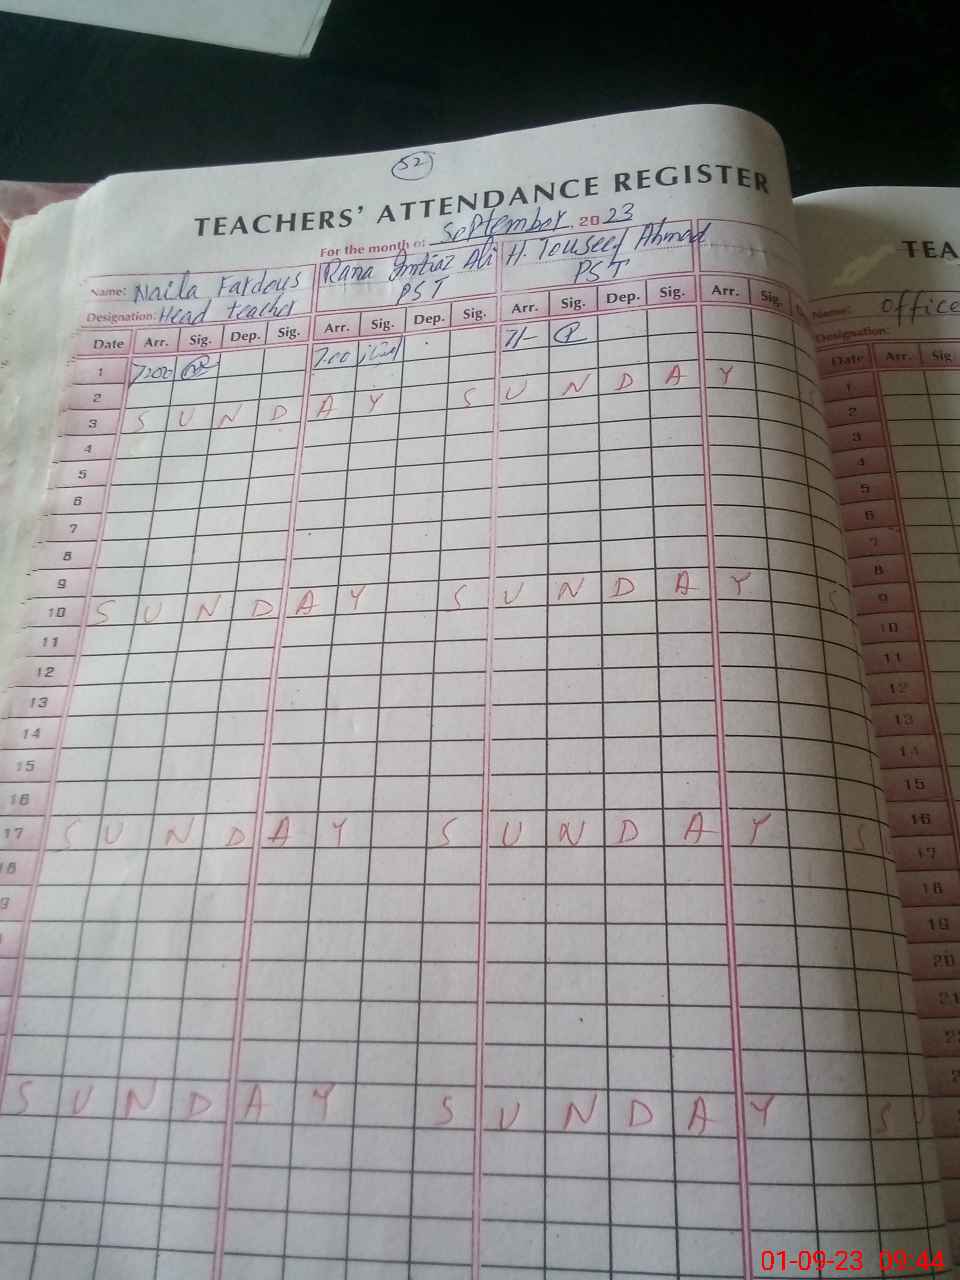 52
TEACHERS' ATTENDANCE REGISTER
For the month of September 2023
Name: Naila Fardous Rana Imtiaz Ali H. Touseef Ahmad
Designation: Head teacher PST PST
Date Arr. Sig. Dep. Sig. Arr. Sig. Dep. Sig. Arr. Sig. Dep. Sig. Arr. Sig.
1 7:00 7:00 7/-
2
3 S U N D A Y S U N D A Y S
4
5
6
7
8
9
10 S U N D A Y S U N D A Y S
11
12
13
14
15
16
17 S U N D A Y S U N D A Y S
18
9
S U N D A Y S U N D A Y S U
TEA
Name: office
Designation:
Date Arr. Sig
1
2
3
4
5
6
7
8
9
10
11
12
13
14
15
16
17
18
19
20
21
01-09-23 09:44